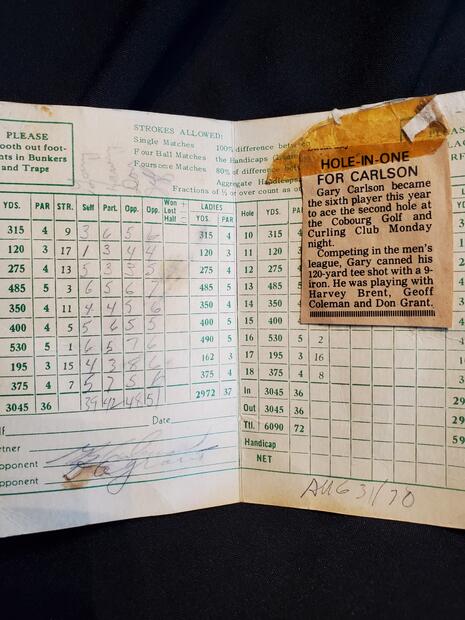 PLEASE
ooth out foot-
nts in Bunkers
and Traps
STROKES ALLOWED:
Single Matches 100% difference between
Four Ball Matches the Handicaps
Foursome Matches 80% of difference
Aggregate Handicaps
Fractions of ½ or over count as
YDS. PAR STR. Self Part. Opp. Opp. Won + Lost - Half LADIES YDS. PAR
315 4 9 3 6 5 6 315 4
120 3 17 1 3 4 4 120 3
275 4 13 275 4
485 5 3 6 5 6 7 485 5
350 4 11 4 4 5 6 350 4
400 4 5 5 6 5 5 400 5
530 5 1 6 5 7 6 490 5
195 3 15 4 3 8 6 162 3
375 4 7 5 7 5 375 4
3045 36 39 42 48 51 2972 37
lf Date
rtner
pponent
pponent
Hole YDS. PAR
10 315 4
11 120 3
12 275 4
13 485 5
14 350 4
15 400 4
16 530 5 2
17 195 3 16
18 375 4 8
In 3045 36
Out 3045 36
Ttl. 6090 72
Handicap
NET
HOLE-IN-ONE
FOR CARLSON
Gary Carlson became
the sixth player this year
to ace the second hole at
the Cobourg Golf and
Curling Club Monday
night.
Competing in the men's
league, Gary canned his
120-yard tee shot with a 9-
iron. He was playing with
Harvey Brent, Geoff
Coleman and Don Grant.
AUG 31/70